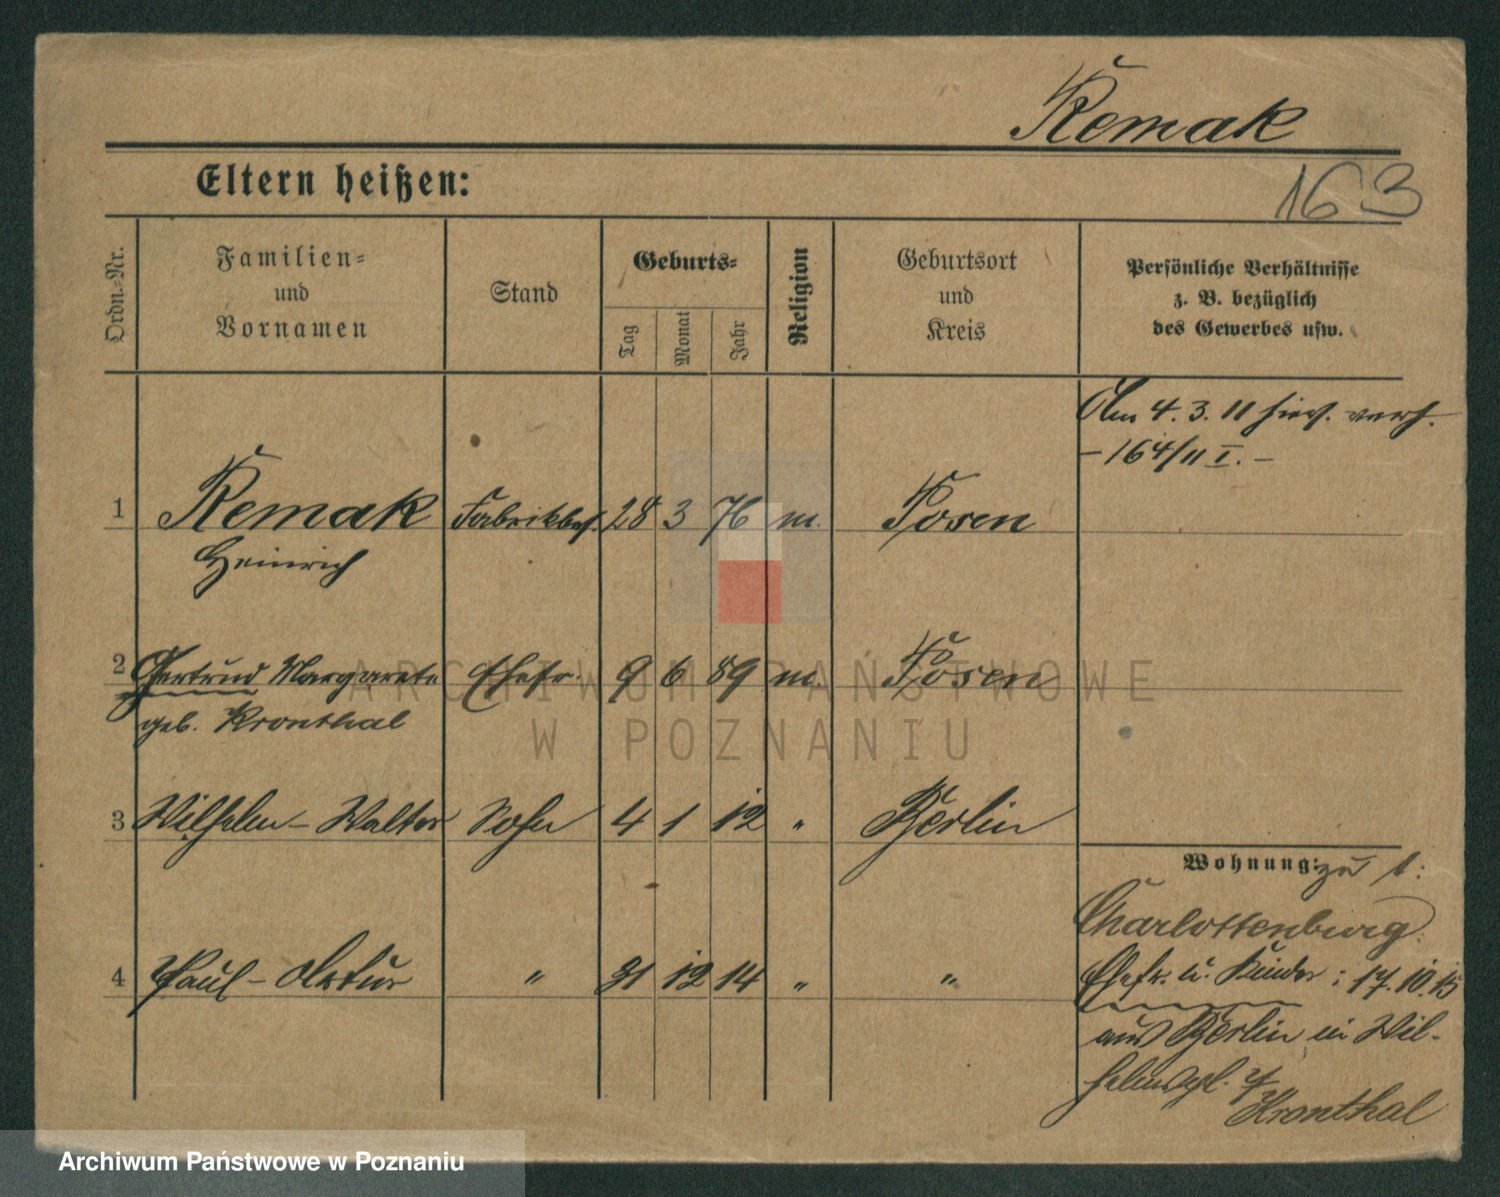 Remak
163
Eltern heißen:
Ordn.-Nr.
Familien-
und
Vornamen
Stand
Geburts-
Tag
Monat
Jahr
Religion
Geburtsort
und
Kreis
Persönliche Verhältnisse
z. B. bezüglich
des Gewerbes usw.
Am 4. 3. 11 hies. verh.
– 164/11 I. –
1 Remak Fabrikbes. 28 3 76 m. Posen
Heinrich
2 Gertrud Margarete Ehefr. 9 6 89 m. Posen
geb. Kronthal
3 Wilhelm – Walter Sohn 4 1 12 " Berlin
4 Paul – Artur " 31 12 14 " "
Wohnung: zu 1:
Charlottenburg.
Ehefr. u. Kinder: 17. 10. 15
aus Berlin in Wil-
helmspl. 7
Kronthal
ARCHIWUM PAŃSTWOWE
W POZNANIU
Archiwum Państwowe w Poznaniu